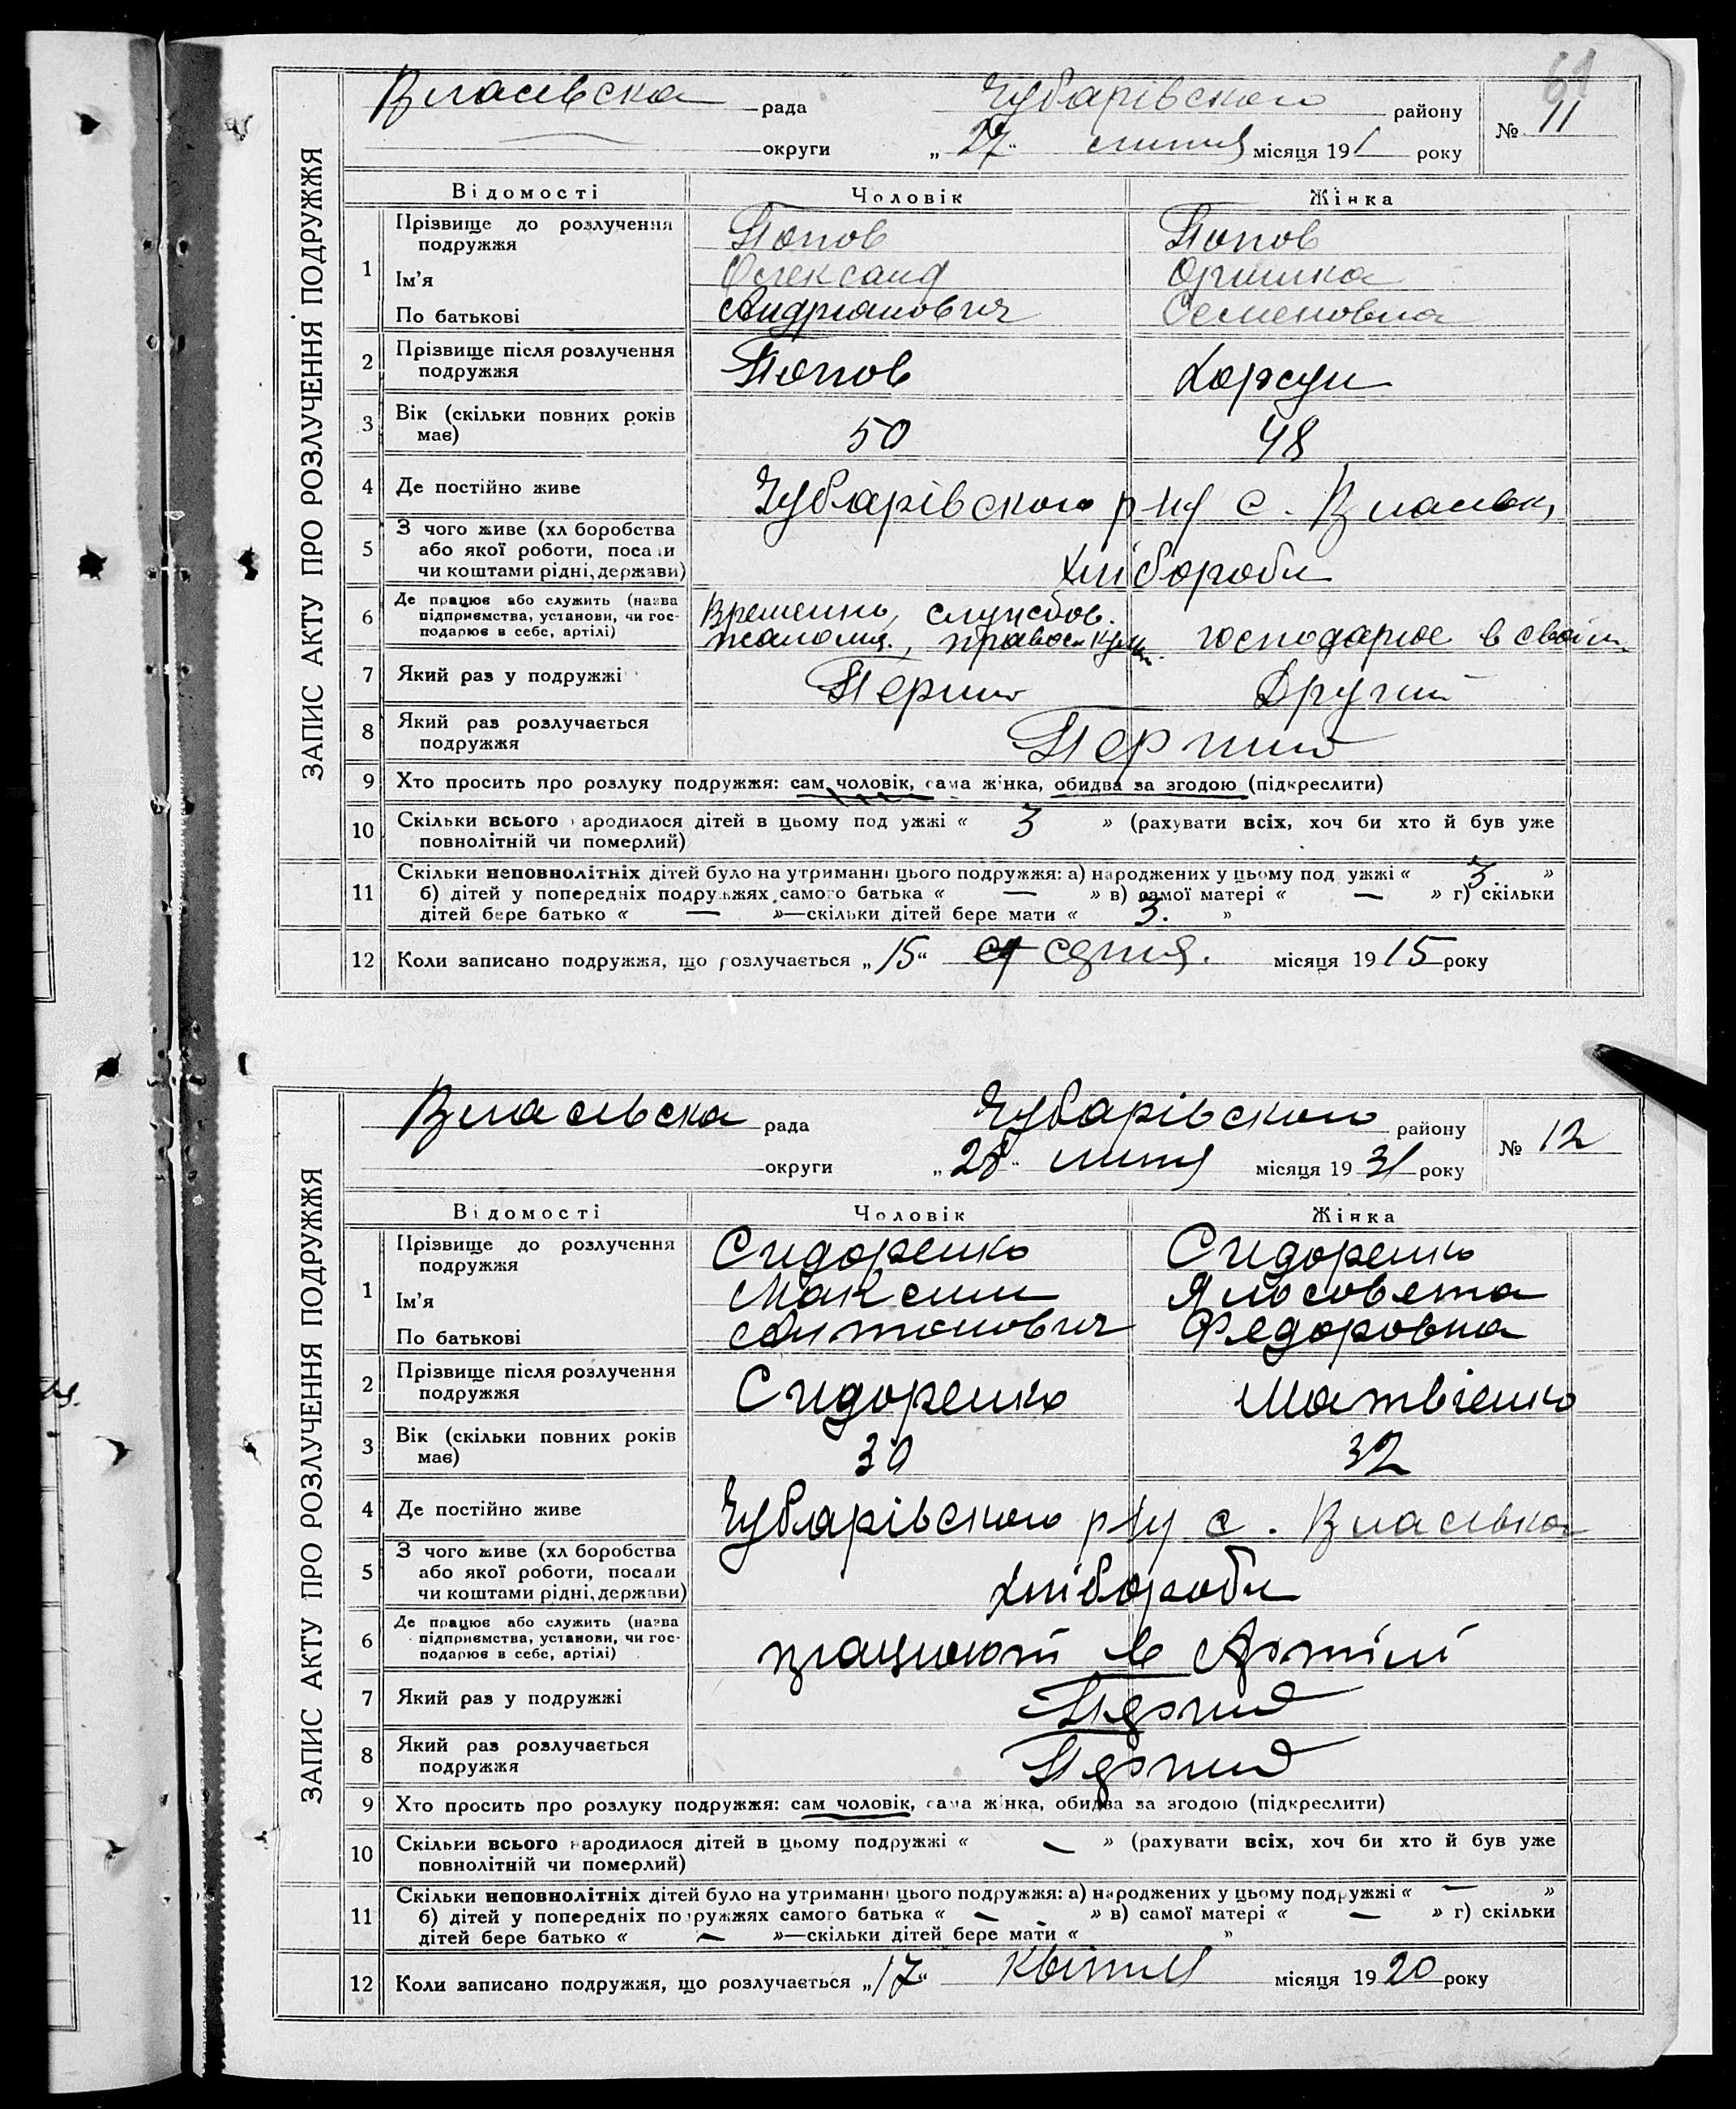 61
Власівска рада Чубарівского району № 11
округи „27“ липня місяця 191 року
ЗАПИС АКТУ ПРО РОЗЛУЧЕННЯ ПОДРУЖЖЯ
Відомості Чоловік Жінка
1 Прізвище до розлучення подружжя Попов Попов
Ім'я Олександ Оришка
По батькові Андрианович Семеновна
2 Прізвище після розлучення подружжя Попов Корсун
3 Вік (скільки повних років має) 50 48
4 Де постійно живе Чубарівского р-ну с. Власівк,
5 З чого живе (хл боробства
або якої роботи, посади
чи коштами рідні, держави) хлібороби
6 Де працює або служить (назва
підприємства, установи, чи гос-
подарює в себе, артілі) Временно, служебов. господарює в своїм
7 Який раз у подружжі Перший Другий
8 Який раз розлучається подружжя Перший
9 Хто просить про розлуку подружжя: сам чоловік, сама жінка, обидва за згодою (підкреслити)
10 Скільки всього народилося дітей в цьому под ужжі « 3 » (рахувати всіх, хоч би хто й був уже
повнолітній чи померлий)
11 Скільки неповнолітніх дітей було на утриманні цього подружжя: а) народжених у цьому под ужжі « 3. »
б) дітей у попередніх подружжях самого батька « — » в) самої матері « — » г) скільки
дітей бере батько « — »—скільки дітей бере мати « 3. »
12 Коли записано подружжя, що розлучається „15“ серпня. місяця 1915 року
Власівска рада Чубарівского району № 12
округи „28“ липня місяця 1931 року
ЗАПИС АКТУ ПРО РОЗЛУЧЕННЯ ПОДРУЖЖЯ
Відомості Чоловік Жінка
1 Прізвище до розлучення подружжя Сидоренко Сидоренко
Ім'я Максим Ялисовета
По батькові Антонович Федоровна
2 Прізвище після розлучення подружжя Сидоренко Матвіенко
3 Вік (скільки повних років має) 30 32
4 Де постійно живе Чубарівского р-ну с. Власівка
5 З чого живе (хл боробства
або якої роботи, посади
чи коштами рідні, держави) хлібороби
6 Де працює або служить (назва
підприємства, установи, чи гос-
подарює в себе, артілі) працюють в Артілі
7 Який раз у подружжі Перший
8 Який раз розлучається подружжя Перший
9 Хто просить про розлуку подружжя: сам чоловік, сама жінка, обидва за згодою (підкреслити)
10 Скільки всього народилося дітей в цьому подружжі « — » (рахувати всіх, хоч би хто й був уже
повнолітній чи померлий)
11 Скільки неповнолітніх дітей було на утриманні цього подружжя: а) народжених у цьому подружжі « — »
б) дітей у попередніх подружжях самого батька « — » в) самої матері « — » г) скільки
дітей бере батько « — »—скільки дітей бере мати « »
12 Коли записано подружжя, що розлучається „17“ Квітня місяця 1920 року